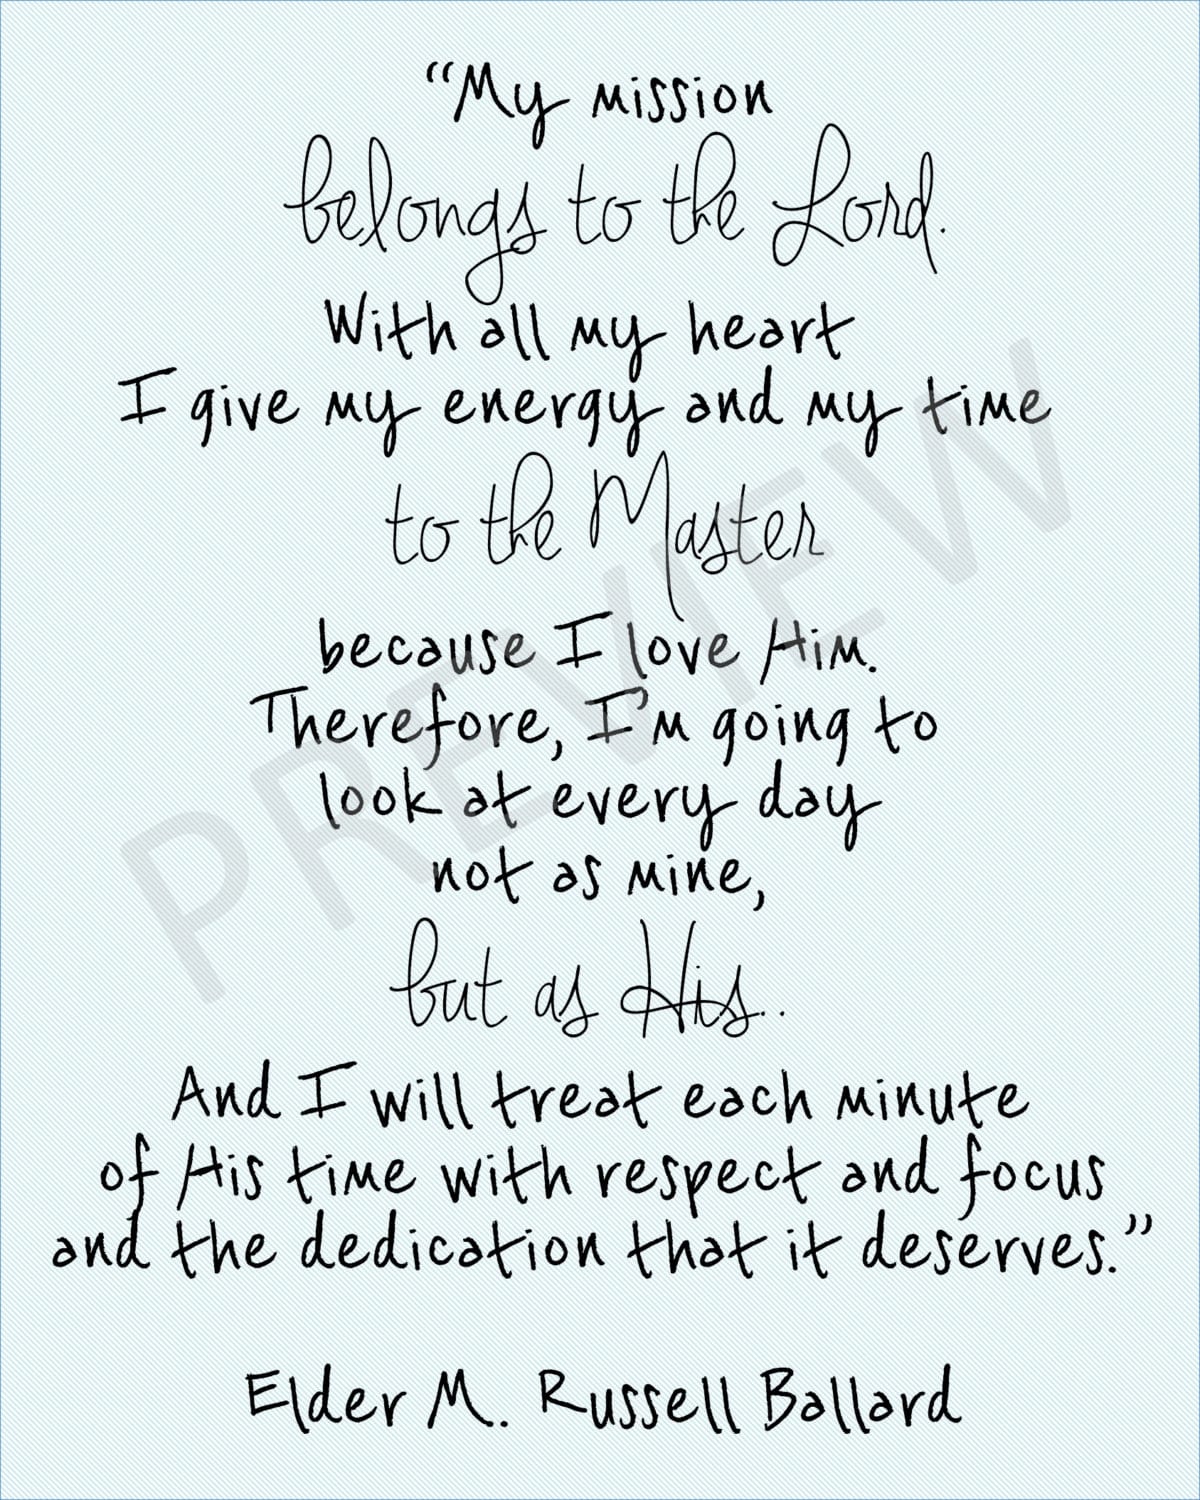 “My mission
belongs to the Lord.
With all my heart
I give my energy and my time
to the Master
because I love Him.
Therefore, I’m going to
look at every day
not as mine,
but as His..
And I will treat each minute
of His time with respect and focus
and the dedication that it deserves.”
Elder M. Russell Ballard
PREVIEW